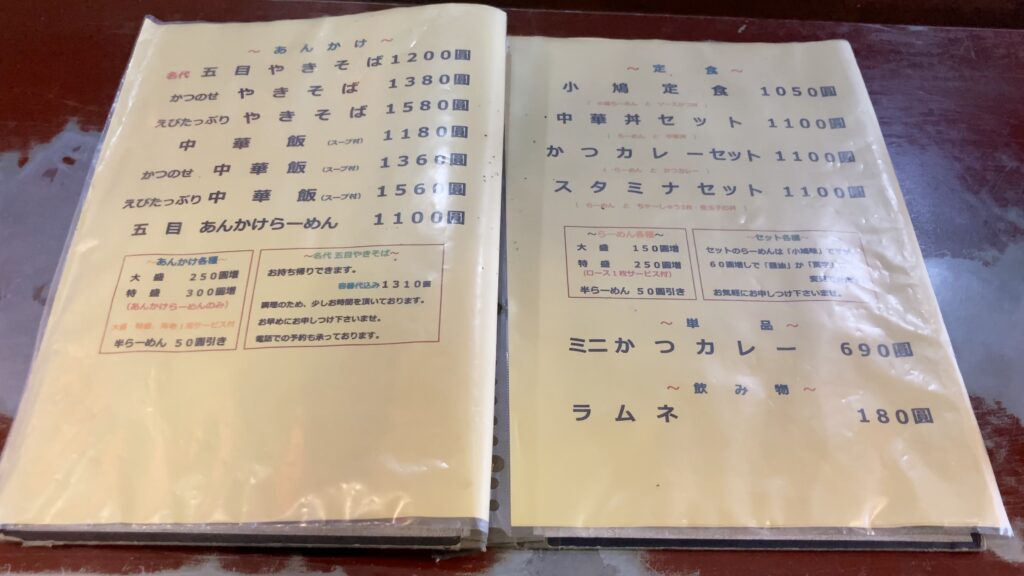 ～ あんかけ ～
名代 五目やきそば 1200圓
かつのせ やきそば 1380圓
えびたっぷり やきそば 1580圓
中華飯 (スープ付) 1180圓
かつのせ 中華飯 (スープ付) 1360圓
えびたっぷり 中華飯 (スープ付) 1560圓
五目 あんかけらーめん 1100圓
～あんかけ各種～
大盛 250圓増
特盛 300圓増
(あんかけらーめんのみ)
半らーめん 50圓引き
～名代 五目やきそば～
お持ち帰りできます。
容器代込み 1310圓
調理のため、少しお時間を頂いております。
お早めにお申しつけ下さいませ。
電話での予約も承っております。
～ 定食 ～
小鳩定食 1050圓
中華丼セット 1100圓
( らーめん と 中華丼 )
かつカレーセット 1100圓
( らーめん と かつカレー )
スタミナセット 1100圓
～らーめん各種～
大盛 150圓増
特盛 250圓増
(ロース1枚サービス付)
半らーめん 50圓引き
～セット各種～
セットのらーめんは「小鳩麺」ですが
60圓増しで「醤油」か
お気軽にお申しつけ下さいませ。
～ 単品 ～
ミニかつカレー 690圓
～ 飲み物 ～
ラムネ 180圓